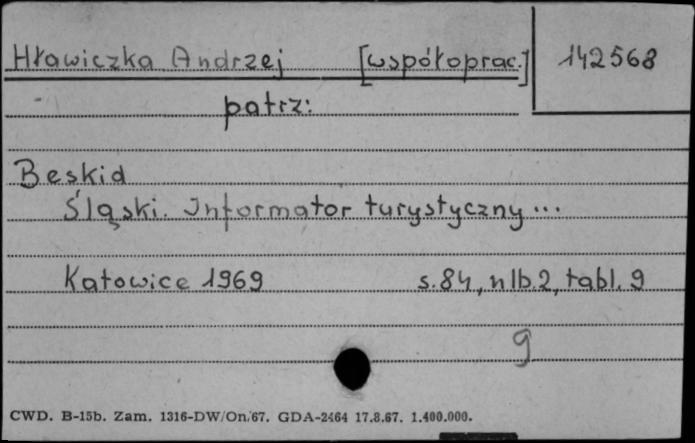 Hławiczka Andrzej [współoprac.] 142568
patrz:
Beskid
Śląski. Informator turystyczny...
Katowice 1969 s. 84, nlb. 2, tabl. 9
g
CWD. B-15b. Zam. 1316-DW/On/67. GDA-2464 17.8.67. 1.400.000.